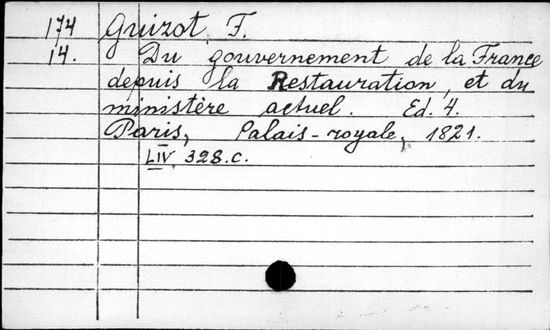 174 Guizot F.
14. Du gouvernement de la France
depuis la Restauration, et du
ministère actuel. Ed. 4.
Paris, Palais-royale, 1821.
LIV, 328.c.